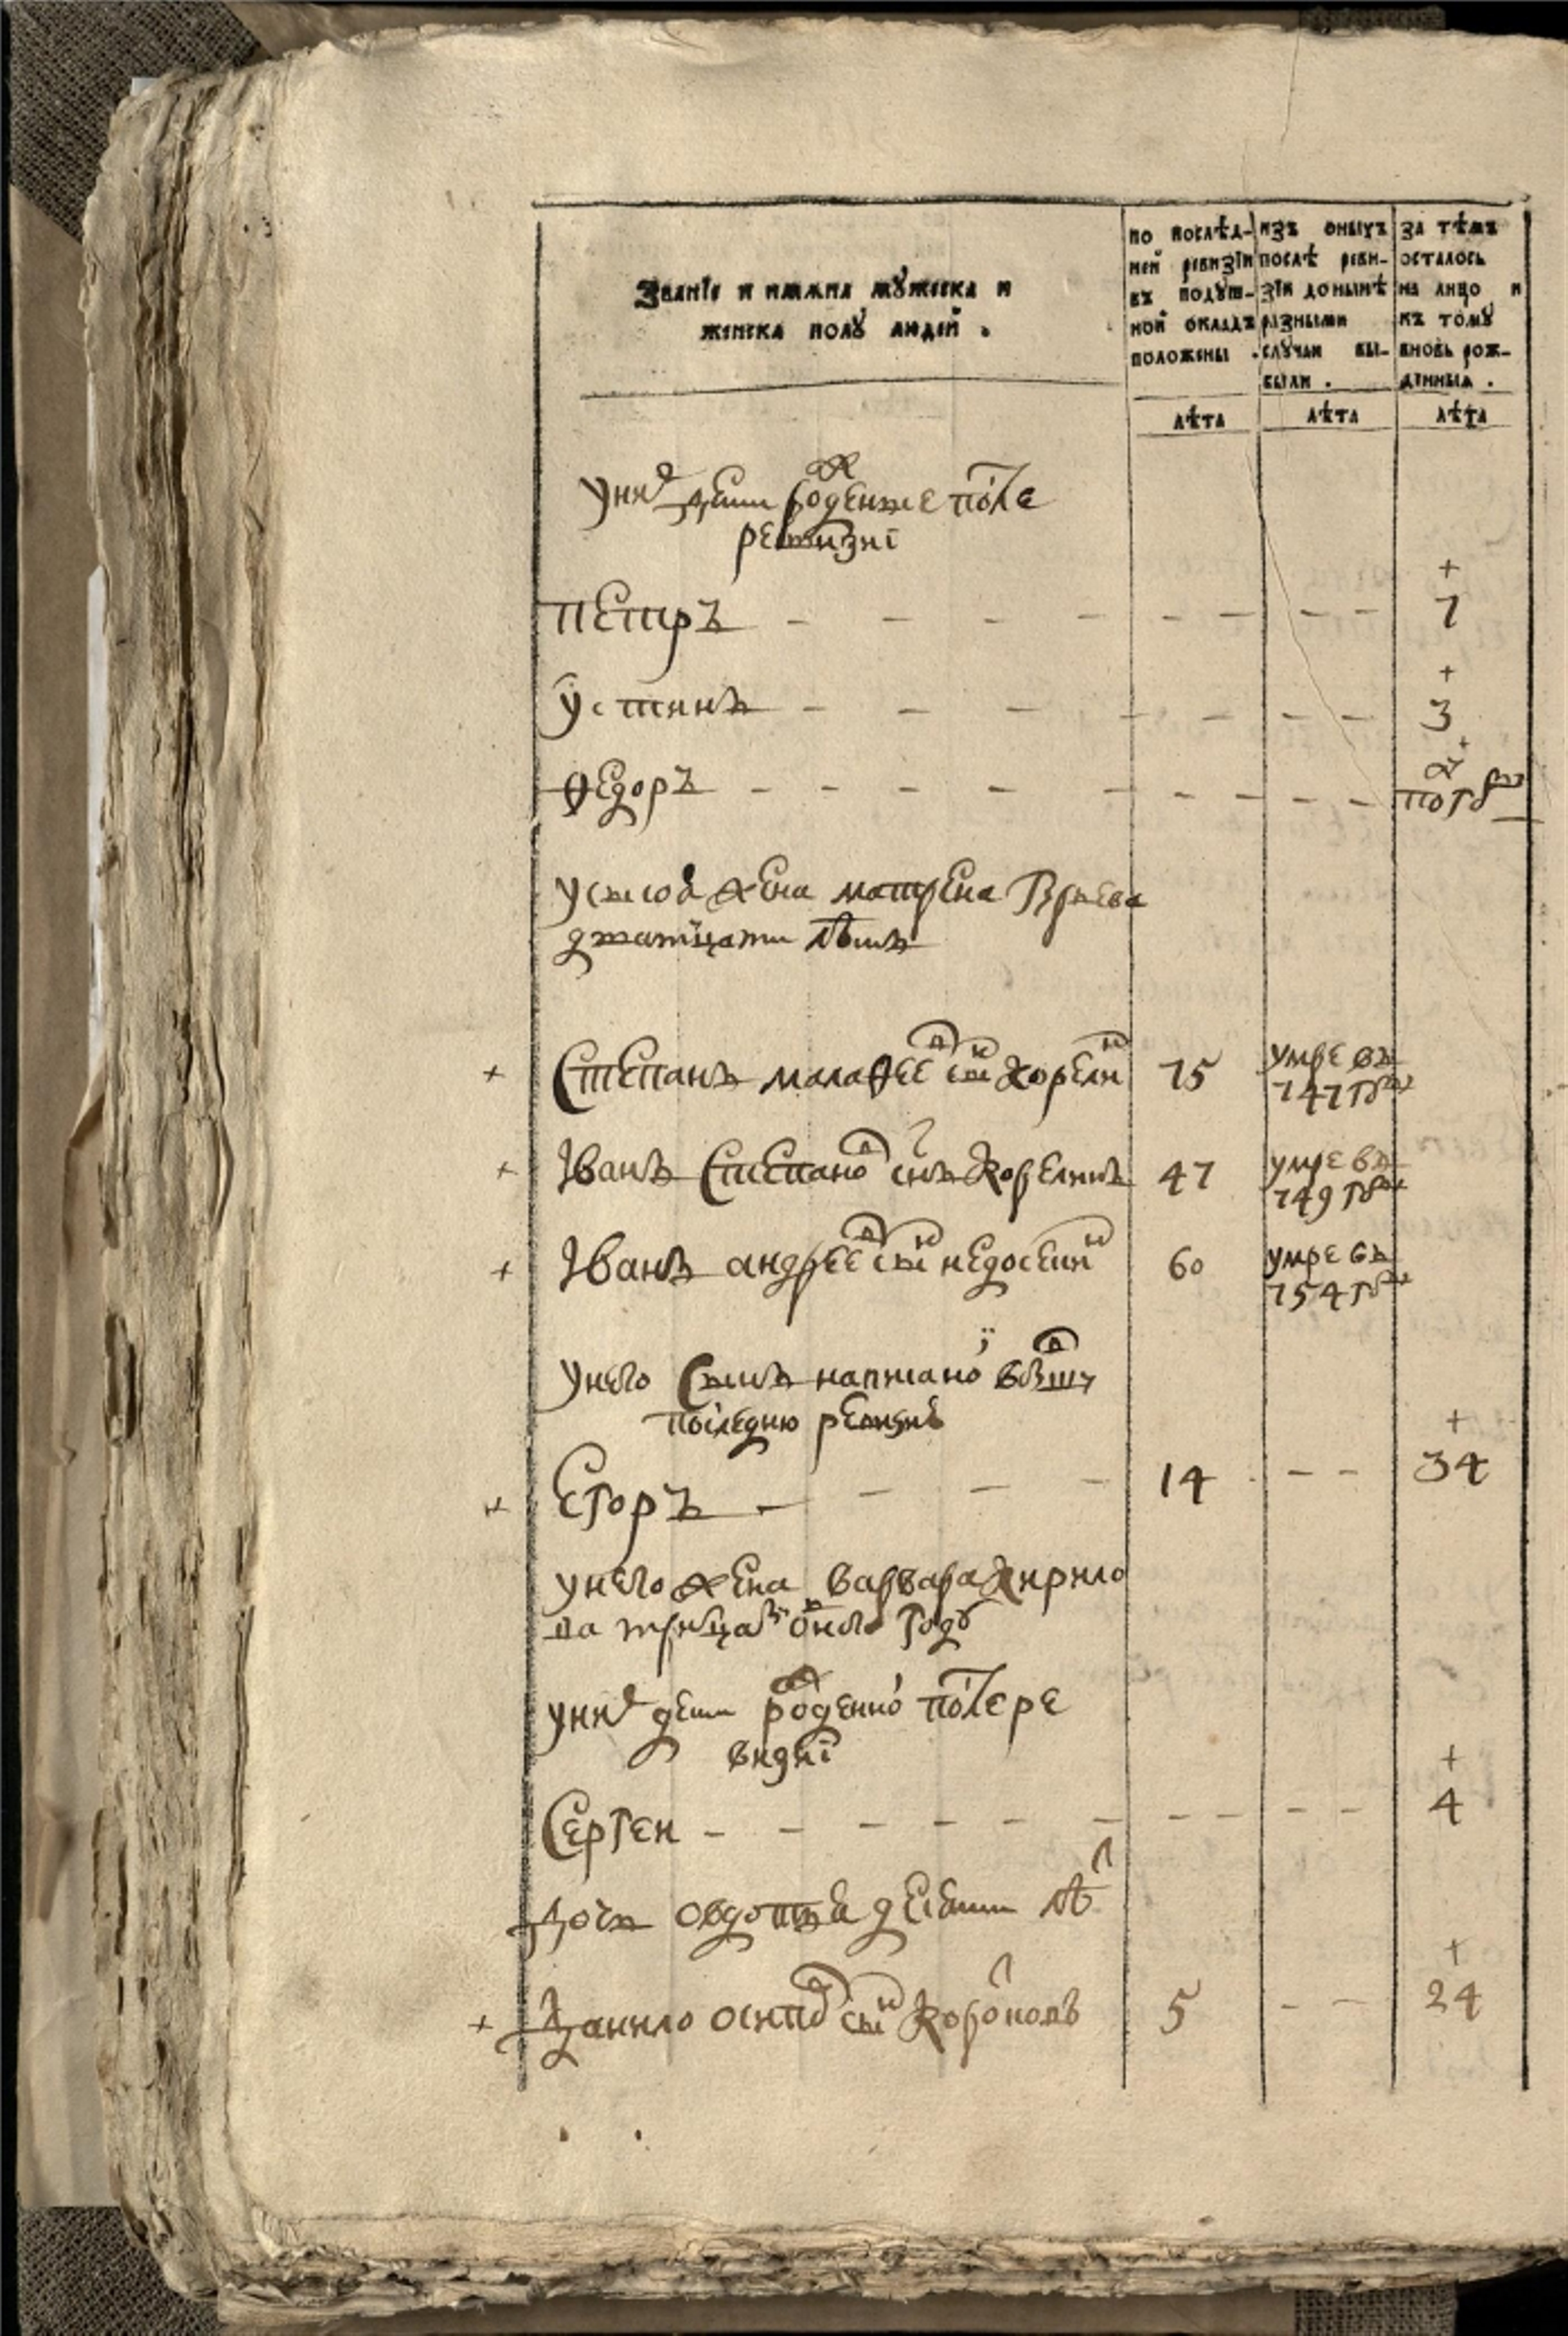 Званіе и имяна мужеска и
женска полу людей .
по послѣд-
ней ревизіи
въ подуш-
ной окладъ
положены .
изъ оныхъ
послѣ реви-
зіи донынѣ
разными
случаи вы-
были .
за тѣмъ
осталось
на лицо и
къ тому
вновь рож-
денныя .
лѣта лѣта лѣта
уних дети рожденые после
ревизиі
+
петръ - - - - - - - - 7
+
устинъ - - - - - - - 3
+
ѳедоръ - - - - - - - - - полгоду
жена матрена
дватцати лѣтъ
+ Степанъ малаѳеевъ сынъ корелин 75 умре въ
747 году
+ Іванъ Степановъ снъ корелинъ 47 умре въ
749 году
+ Іванъ андреевъ сынъ 60 умре въ
754 году
унего сынъ написаной въ
последнюю ревизию
+
+ Егоръ - - - - 14 - - 34
унего жена варвара кирило
ва тритцати одного году
уних дети рожденной после ре
визиі
+
Сергеи - - - - - - - - - - 4
дочь овдотья десяти лѣт
+
+ Данило осипов сынъ 5 - - 24